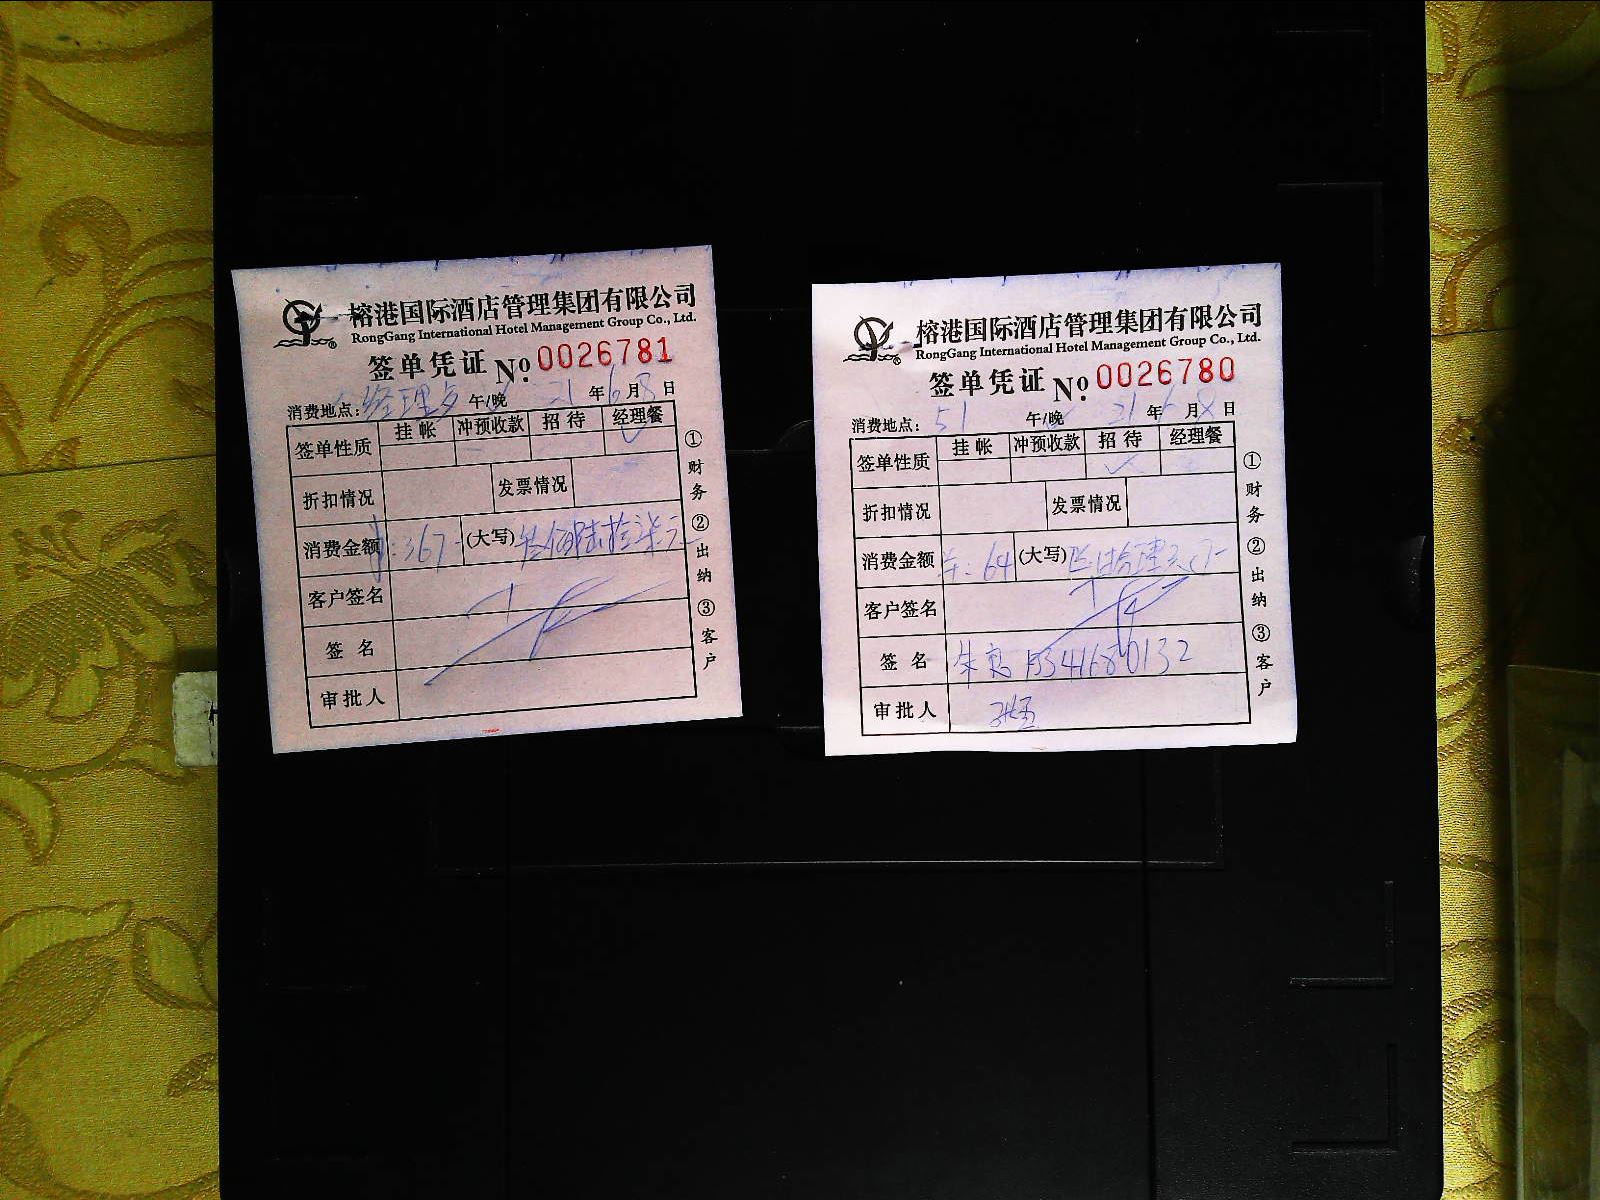 榕港国际酒店管理集团有限公司
RongGang International Hotel Management Group Co., Ltd.
签单凭证 No. 0026781
消费地点: 经理 午/晚 21年6月8日
签单性质 挂帐 冲预收款 招待 经理餐
折扣情况 发票情况
消费金额 367- (大写) 叁佰陆拾柒元
客户签名
签名
审批人
①财务 ②出纳 ③客户
榕港国际酒店管理集团有限公司
RongGang International Hotel Management Group Co., Ltd.
签单凭证 No. 0026780
消费地点: 51 午/晚 21年6月8日
签单性质 挂帐 冲预收款 招待 经理餐
折扣情况 发票情况
消费金额 64 (大写)
客户签名
签名 朱 13341680132
审批人
①财务 ②出纳 ③客户